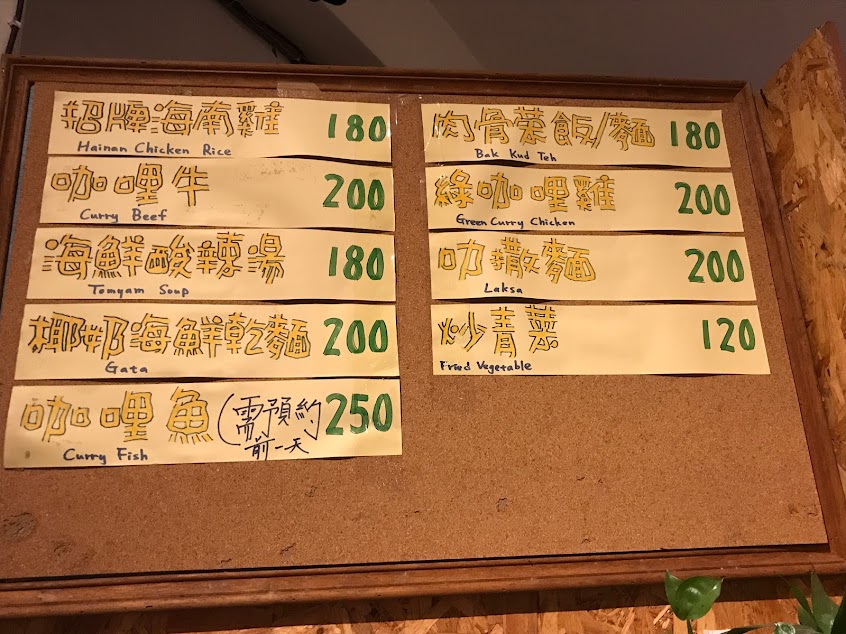 招牌海南雞 180
Hainan Chicken Rice
咖哩牛 200
Curry Beef
海鮮酸辣湯 180
Tomyam Soup
椰奶海鮮乾麵 200
Gata
咖哩魚(需預約 250
前一天
Curry Fish
肉骨菜飯/麵 180
Bak Kud Teh
綠咖哩雞 200
Green Curry Chicken
叻撒麵 200
Laksa
炒菁菜 120
Fried Vegetable